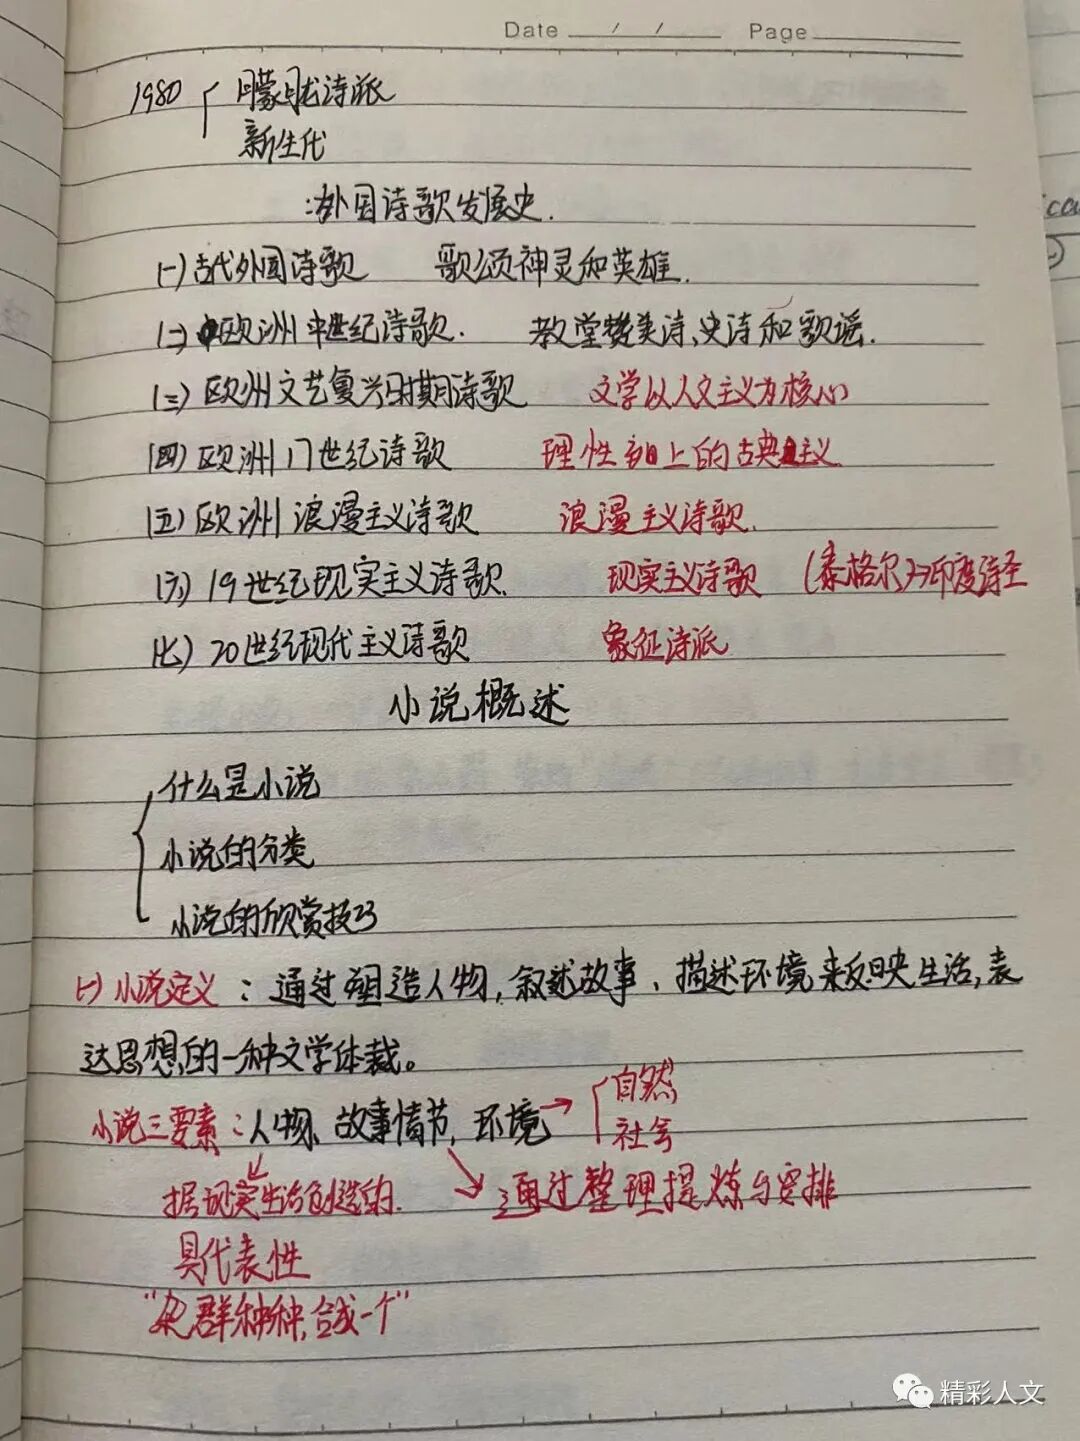 Date / / Page
1980 朦胧诗派
新生代
:外国诗歌发展史.
(一)古代外国诗歌 歌颂神灵和英雄.
(二)欧洲中世纪诗歌. 教堂赞美诗、史诗和歌谣.
(三)欧州文艺复兴时期诗歌 文学以人文主义为核心
(四)欧洲17世纪诗歌 理性至上的古典主义
(五)欧洲浪漫主义诗歌 浪漫主义诗歌.
(六)19世纪现实主义诗歌. 现实主义诗歌 (泰格尔)→印度诗圣
(七)20世纪现代主义诗歌 象征诗派
小说概述
什么是小说
小说的分类
小说的欣赏技巧
(一)小说定义：通过塑造人物,叙述故事、描述环境来反映生活,表
达思想的一种文学体裁。
小说三要素：人物、故事情节,环境→ 自然
社会
据现实生活创造的. 通过整理提炼与安排
具代表性
"杂群种种,合成一个"
精彩人文